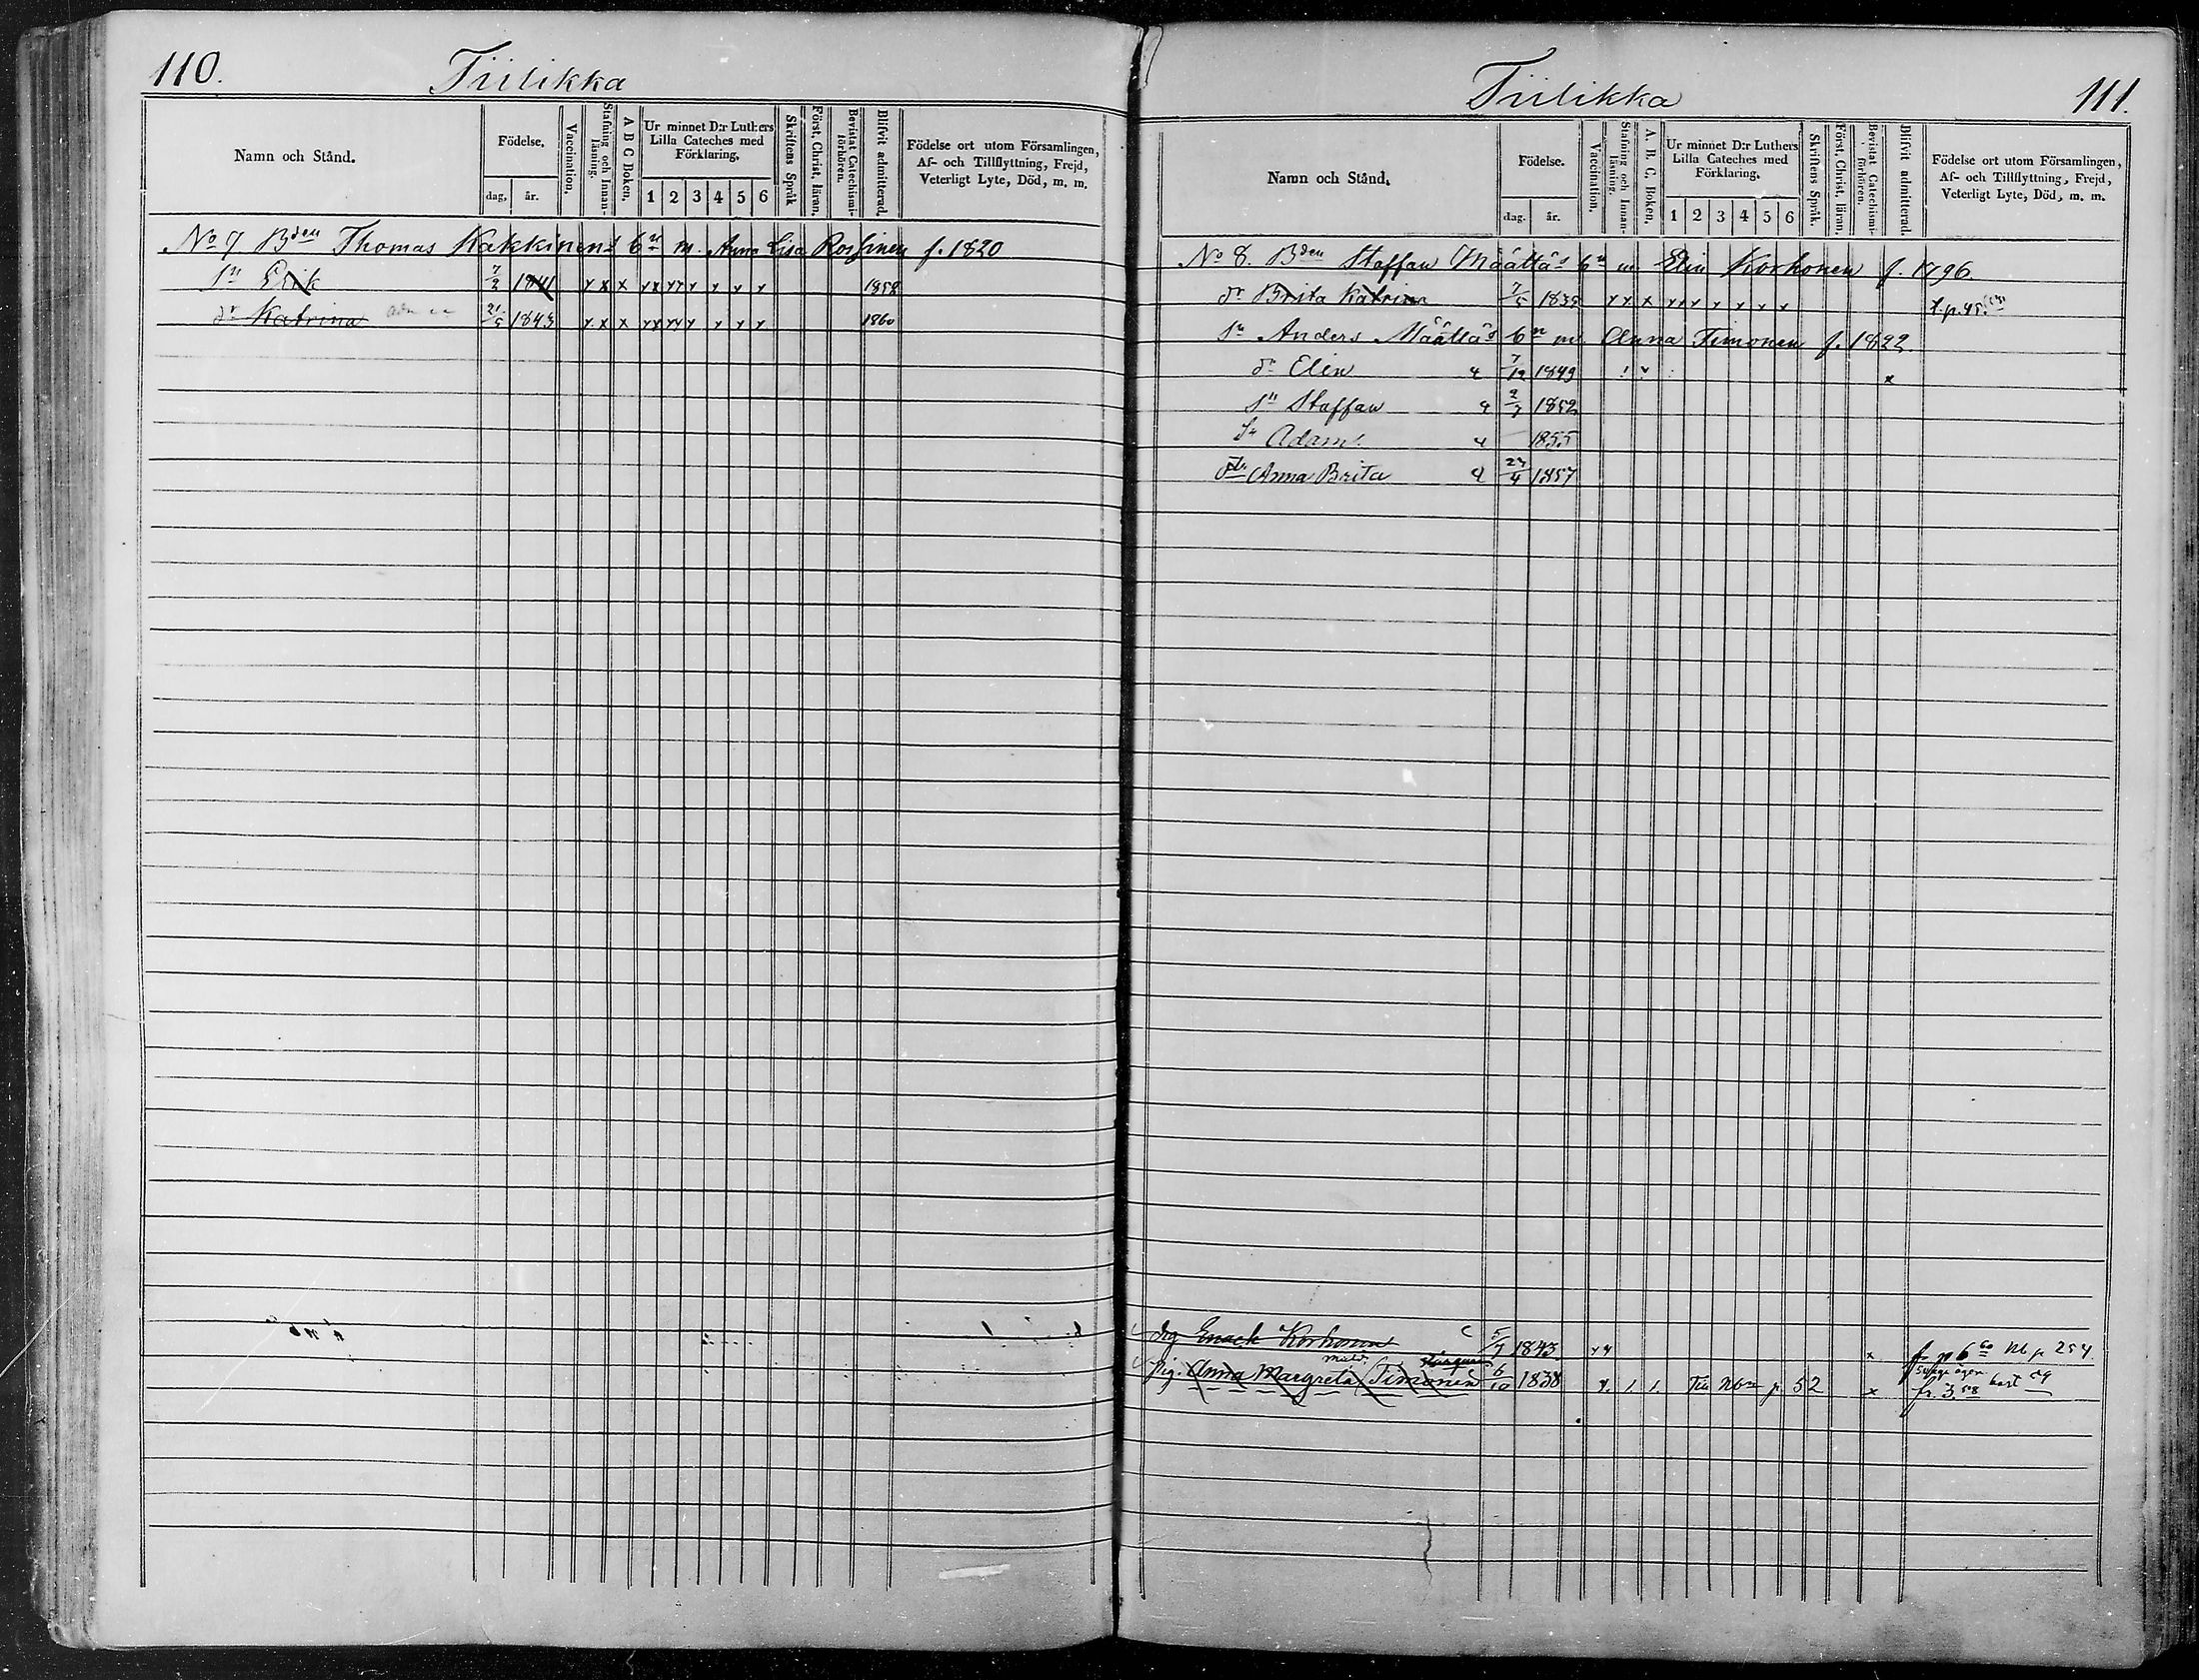 110.
Tiilikka
Namn och Stånd.
Födelse.
dag. år.
Vaccination.
Stafning och Innanläsning.
A B C Boken.
Ur minnet D:r Luthers Lilla Cateches med Förklaring.
1 2 3 4 5 6
Skriftens Språk
Först. Christ. läran.
Bevistat Catechismiförhören.
Blifvit admitterad.
Födelse ort utom Församlingen,
Af- och Tillflyttning, Frejd,
Veterligt Lyte, Död, m. m.
No 7. Bden Thomas Kakkinens 6n m. Anna Lisa Rossinen f. 1820
Sn Erik 7/2 1841 x x x x x x x x x x 1858
dr Katrina 21/5 1843 x x x x x x x x x x 1860
Tiilikka
111.
Namn och Stånd.
Födelse.
dag. år.
Vaccination.
Stafning och Innanläsning.
A. B. C. Boken.
Ur minnet D:r Luthers Lilla Cateches med Förklaring.
1 2 3 4 5 6
Skriftens Språk.
Först. Christ. läran.
Bevistat Catechismiförhören.
Blifvit admitterad.
Födelse ort utom Församlingen,
Af- och Tillflyttning, Frejd,
Veterligt Lyte, Död, m. m.
No 8. Bden Staffan Määttäs 6n m Elin Korhonen f. 1796.
dr Brita Katrina 7/5 1835 x x x x x x x x x x
Sn Anders Määttäs 6n m Anna Timonen f. 1822.
dr Elin 7/12 1849 x
Sn Staffan 2/7 1852
Sn Adam 1855
dr Anna Brita 27/4 1857
drg Enock Korhonen 5/7 1843 x fr p 6 60 Nb p 254.
Pig. Anna Margreta Timonen 6/10 1838 Nbn p 52 x fr. 3. 58